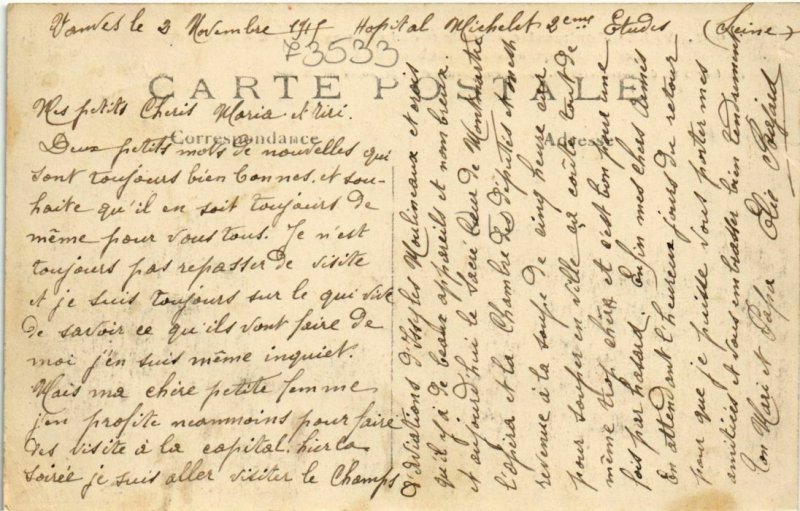 Vanves le 2 Novembre 1915 Hopital Michelet 2eme Etudes (Seine)
73533
CARTE POSTALE
Correspondance
Adresse
Mes petits Cheris Maria et riri.
Deux petits mots de nouvelles qui
sont toujours bien bonnes. et sou-
haite qu'il en soit toujours de
même pour vous tous. Je n'est
toujours pas repasser de visite
et je suis toujours sur le qui vive
de savoir ce qu'ils vont faire de
moi j'en suis même inquiet.
Mais ma chère petite femme
j'en profite neanmoins pour faire
des visite à la capital. hier la
soirée je suis aller visiter le Champs
d'aviations d'Issy les Moulineaux et crois
qu'il y à de beaux appareils et nombreux.
et aujourd'hui le Sacré Cœur de Montmartre
l'opéra et la Chambre des députés et m'est
revenue à la soupe de cinq heure car
pour souper en ville ça coûte tout de
même trop chère et c'est bon pour une
fois par hasard. Enfin mes chers Aimés
En attendant l'heureux jours du retour
pour que je puisse vous porter mes
amitiées et vous embrasser bien tendrement
Ton Mari et Papa Elie